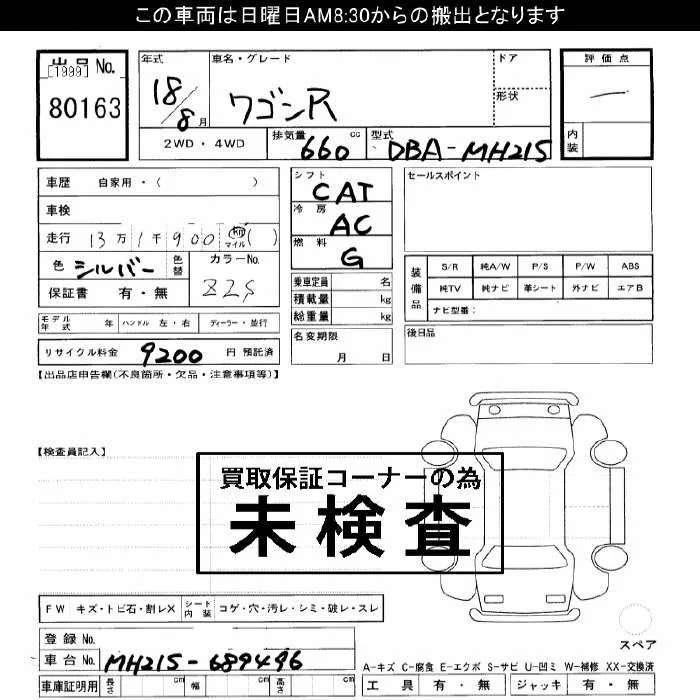 この車両は日曜日AM8:30からの搬出となります
出品No.
[1999]
80163
年式 車名・グレード ドア
18/8月 ワゴンR
形状
評価点
一
内装
2WD・4WD 排気量 660 cc 型式 DBA-MH21S
車歴 自家用・( )
車検
走行 13万1千900 km マイル ( )
色 シルバー 色替 カラーNo.
保証書 有・無 Z2S
シフト CAT
冷房 AC
燃料 G
セールスポイント
乗車定員 名
積載量 kg
総重量 kg
装備品 S/R 純A/W P/S P/W ABS
純TV 純ナビ 革シート 外ナビ エアB
ナビ型番:
モデル年式 年 ハンドル 左・右 ディーラー・並行
名変期限
月 日
後日品
リサイクル料金 9200 円 預託済
【出品店申告欄(不良箇所・欠品・注意事項等)】
【検査員記入】
買取保証コーナーの為
未検査
FW キズ・トビ石・割レX シート内装 コゲ・穴・汚レ・シミ・破レ・スレ
登録No.
車台No. MH21S-689496
車庫証明用 長さ cm 幅 cm 高さ cm
スペア
A-キズ C-腐食 E-エクボ S-サビ U-凹ミ W-補修 XX-交換済
工具 有・無 ジャッキ 有・無